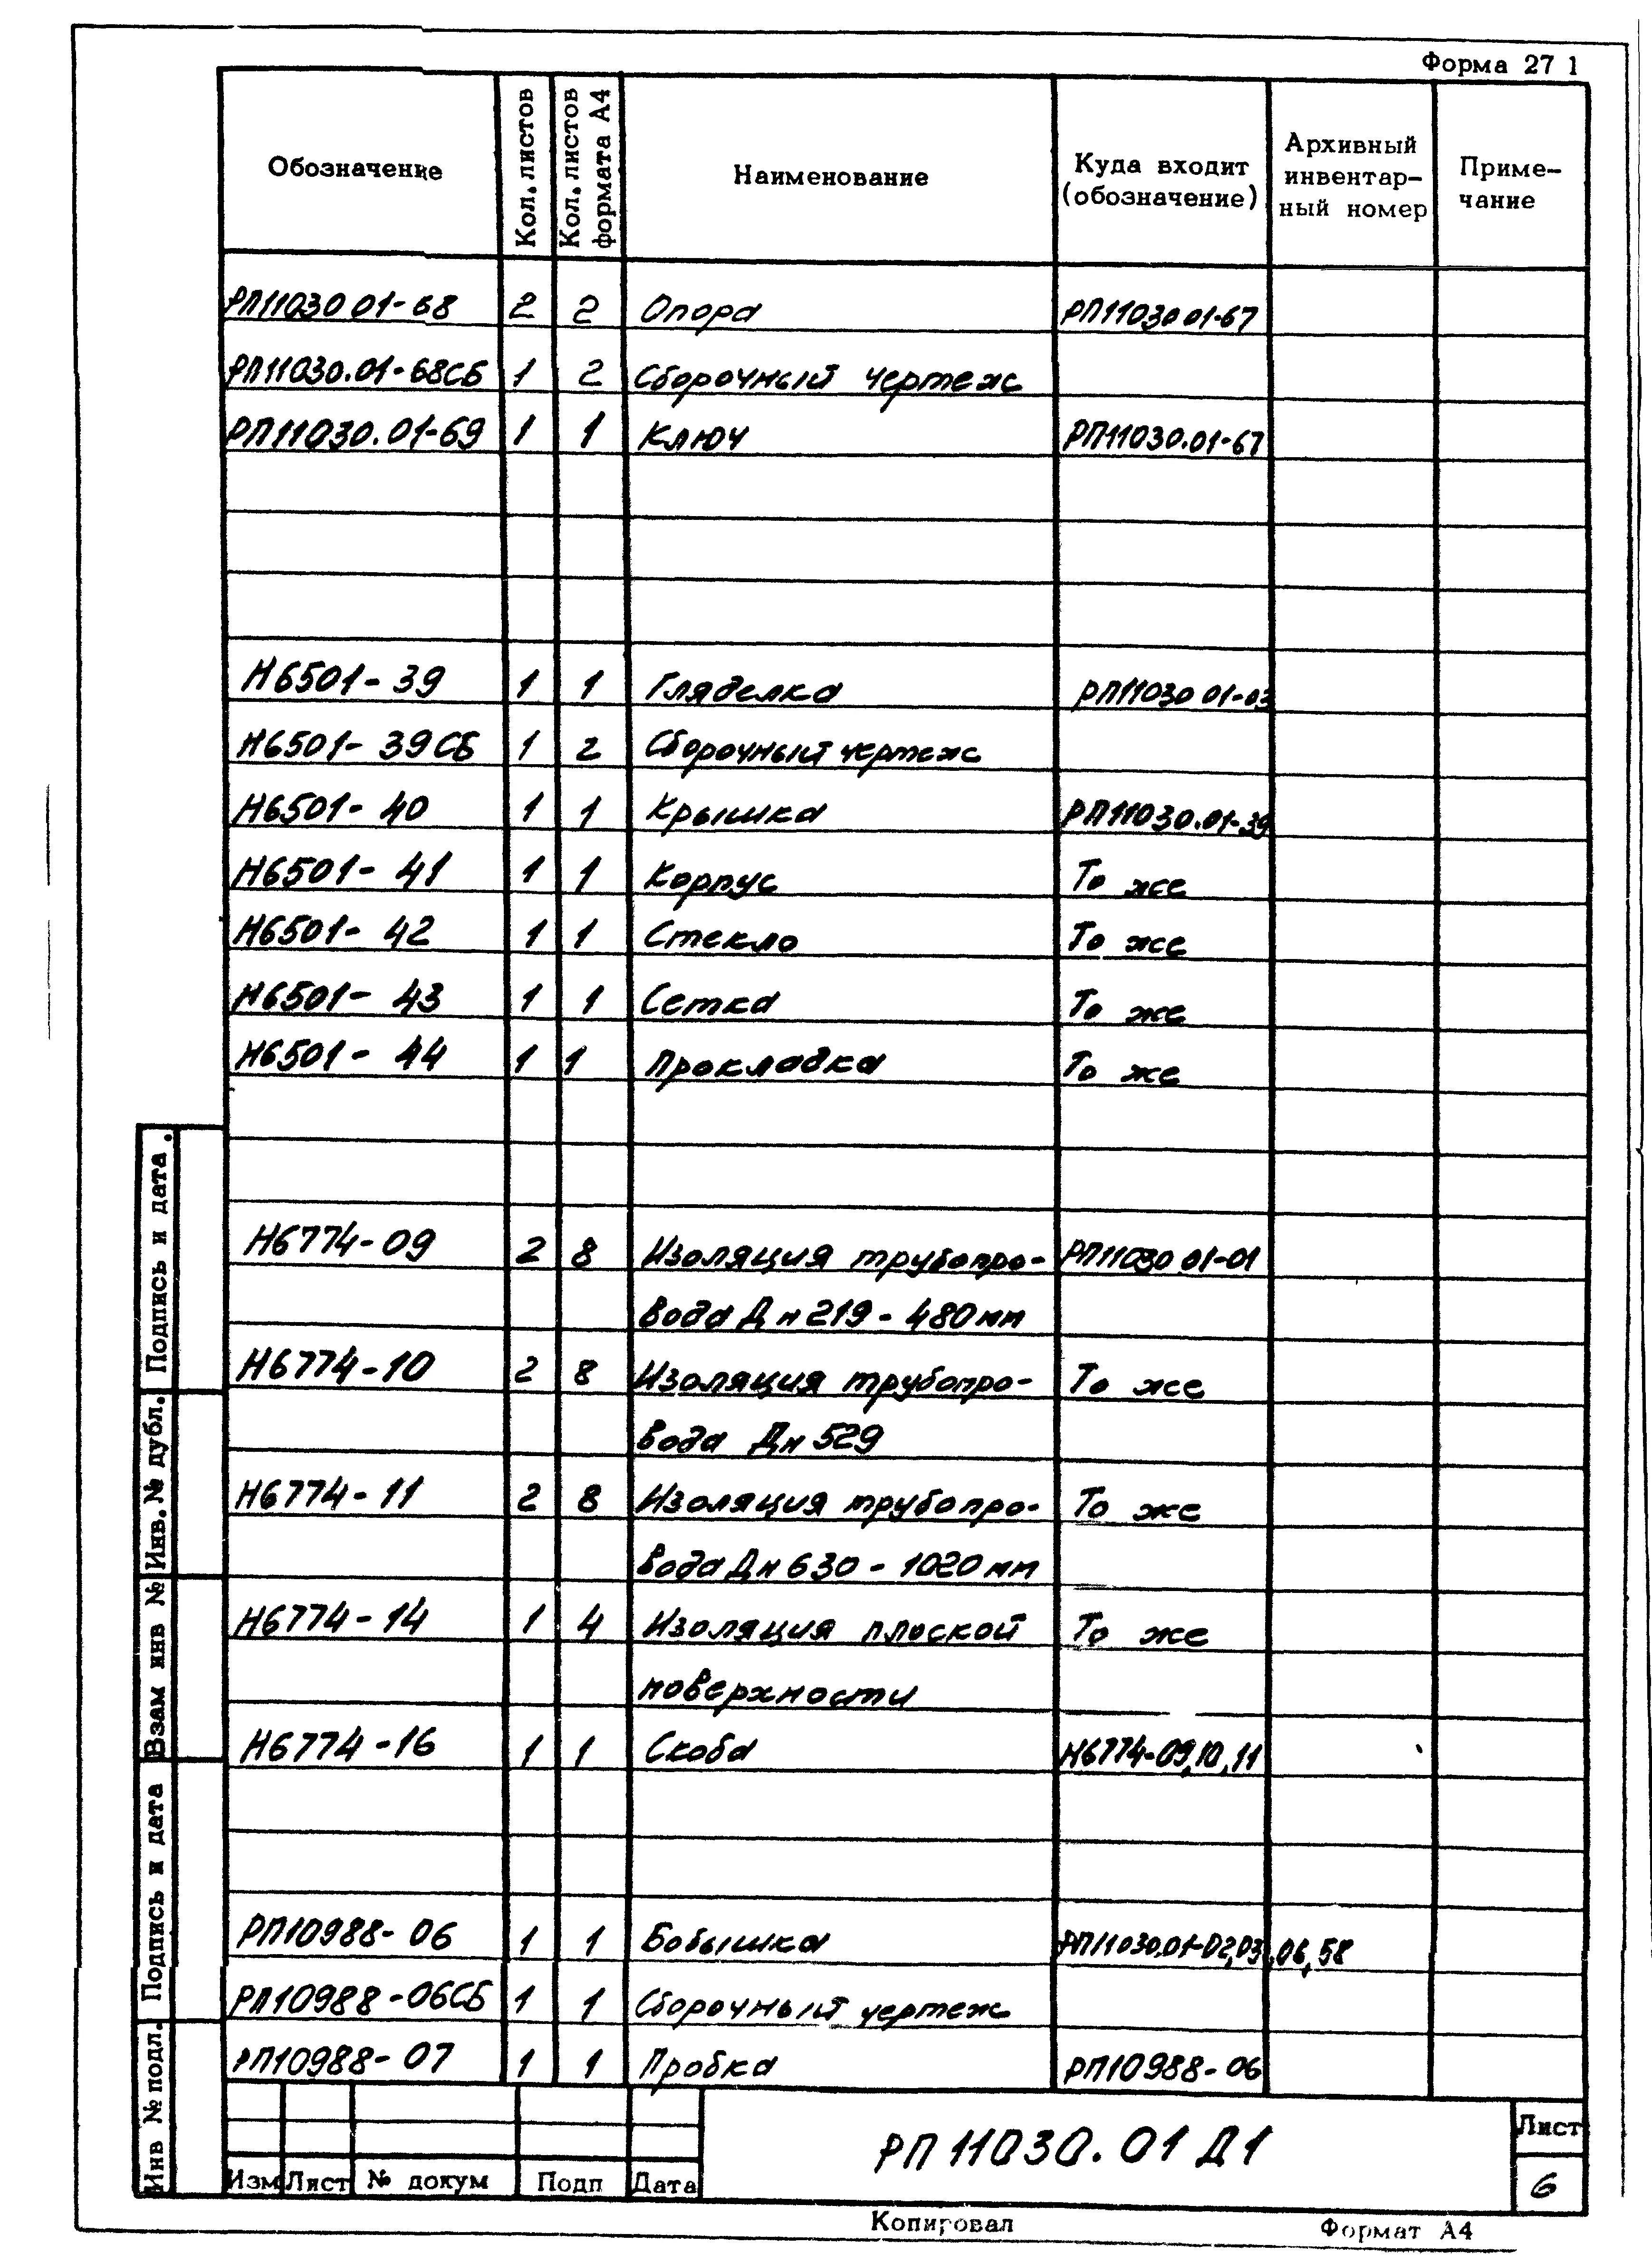 Форма 27 1
Обозначение
Кол. листов
Кол. листов
формата А4
Наименование
Куда входит
(обозначение)
Архивный
инвентар-
ный номер
Приме-
чание
РП11030 01-68 2 2 Опора РП11030 01-67
РП11030.01-68СБ 1 2 Сборочный чертеж
РП11030.01-69 1 1 Ключ РП11030.01-67
Н6501-39 1 1 Гляделка РП11030 01-03
Н6501-39СБ 1 2 Сборочный чертеж
Н6501-40 1 1 Крышка РП11030.01-39
Н6501-41 1 1 Корпус То же
Н6501-42 1 1 Стекло То же
Н6501-43 1 1 Сетка То же
Н6501-44 1 1 Прокладка То же
Н6774-09 2 8 Изоляция трубопро- РП11030 01-01
вода Дн 219-480мм
Н6774-10 2 8 Изоляция трубопро- То же
вода Дн 529
Н6774-11 2 8 Изоляция трубопро- То же
вода Дн 630-1020мм
Н6774-14 1 4 Изоляция плоской То же
поверхности
Н6774-16 1 1 Скоба Н6774-09,10,11
РП10988-06 1 1 Бобышка РП11030.01-02,03,06,58
РП10988-06СБ 1 1 Сборочный чертеж
РП10988-07 1 1 Пробка РП10988-06
Подпись и дата.
Инв. № дубл.
Взам инв №
Подпись и дата
Инв № подл.
Изм Лист № докум Подп Дата
РП 11030.01 Д1
Лист
6
Копировал
Формат А4